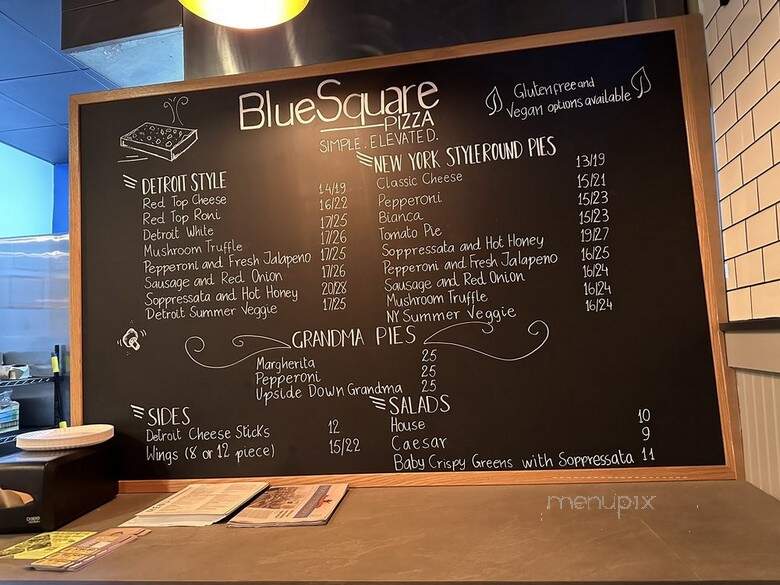 BlueSquare
PIZZA
SIMPLE. ELEVATED.
Gluten free and
Vegan options available
DETROIT STYLE
Red Top Cheese 14/19
Red Top Roni 16/22
Detroit White 17/25
Mushroom Truffle 17/26
Pepperoni and Fresh Jalapeno 17/25
Sausage and Red Onion 17/26
Soppressata and Hot Honey 20/28
Detroit Summer Veggie 17/25
NEW YORK STYLE ROUND PIES
Classic Cheese 13/19
Pepperoni 15/21
Bianca 15/23
Tomato Pie 15/23
Soppressata and Hot Honey 19/27
Pepperoni and Fresh Jalapeno 16/25
Sausage and Red Onion 16/24
Mushroom Truffle 16/24
NY Summer Veggie 16/24
GRANDMA PIES
Margherita 25
Pepperoni 25
Upside Down Grandma 25
SIDES
Detroit Cheese Sticks 12
Wings (8 or 12 piece) 15/22
SALADS
House 10
Caesar 9
Baby Crispy Greens with Soppressata 11
menupix